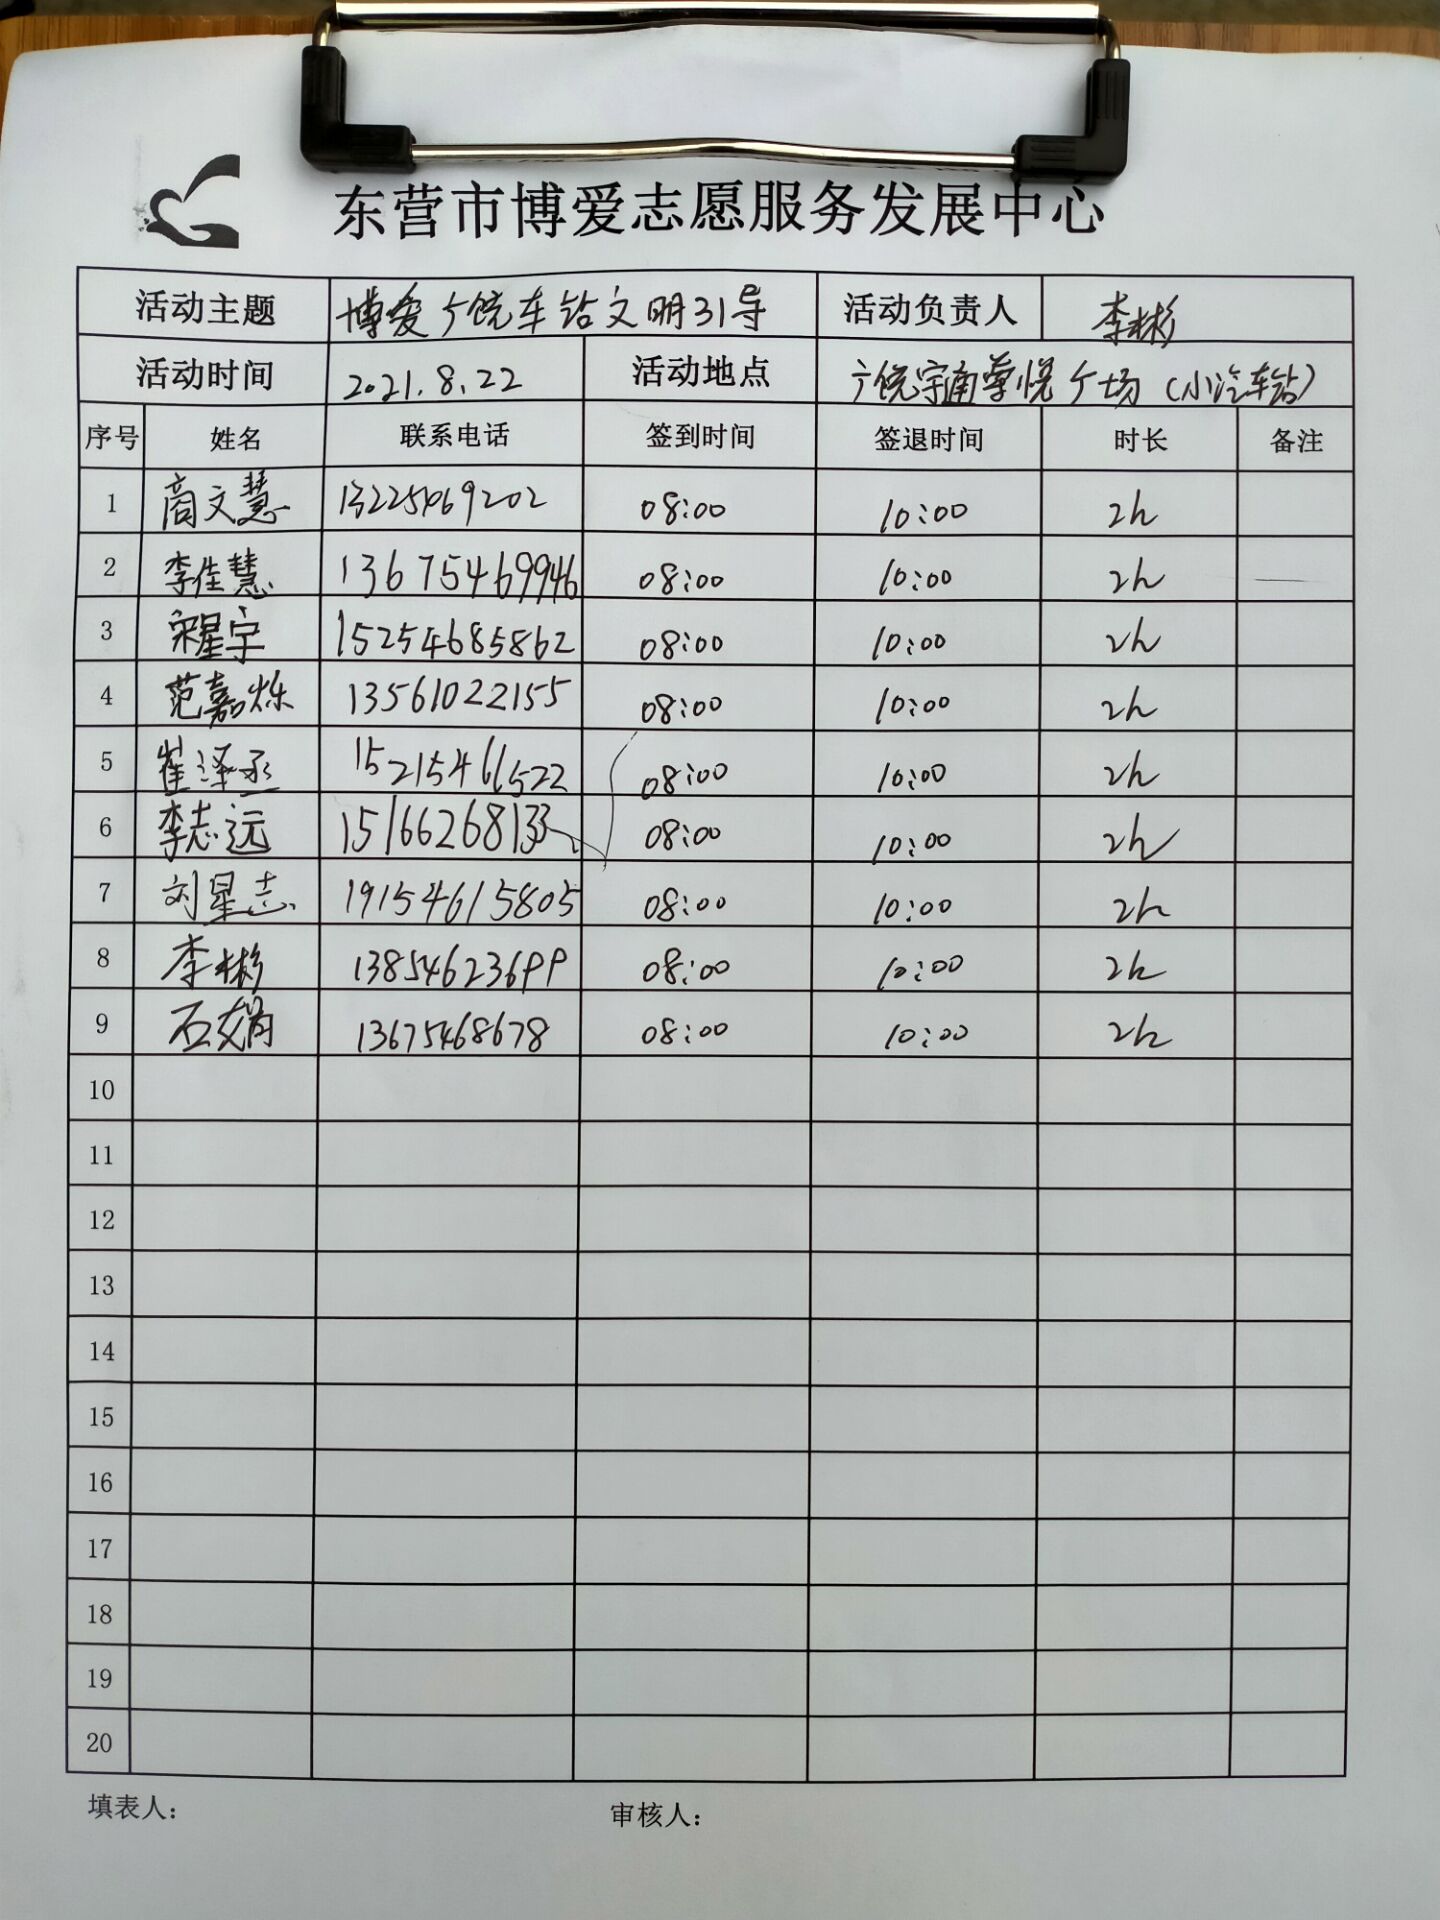 东营市博爱志愿服务发展中心
活动主题 博爱广饶车站文明引导 活动负责人 李彬
活动时间 2021.8.22 活动地点 广饶宇通尊悦广场（小汽车站）
序号 姓名 联系电话 签到时间 签退时间 时长 备注
1 商文慧 13225469202 08:00 10:00 2h
2 李佳慧 13675469946 08:00 10:00 2h
3 宋星宇 15254685862 08:00 10:00 2h
4 范嘉烁 13561022155 08:00 10:00 2h
5 崔泽丞 15215466522 08:00 10:00 2h
6 李志远 15166268133 08:00 10:00 2h
7 刘星志 19154615805 08:00 10:00 2h
8 李彬 13854623699 08:00 10:00 2h
9 13675468678 08:00 10:00 2h
10
11
12
13
14
15
16
17
18
19
20
填表人： 审核人：